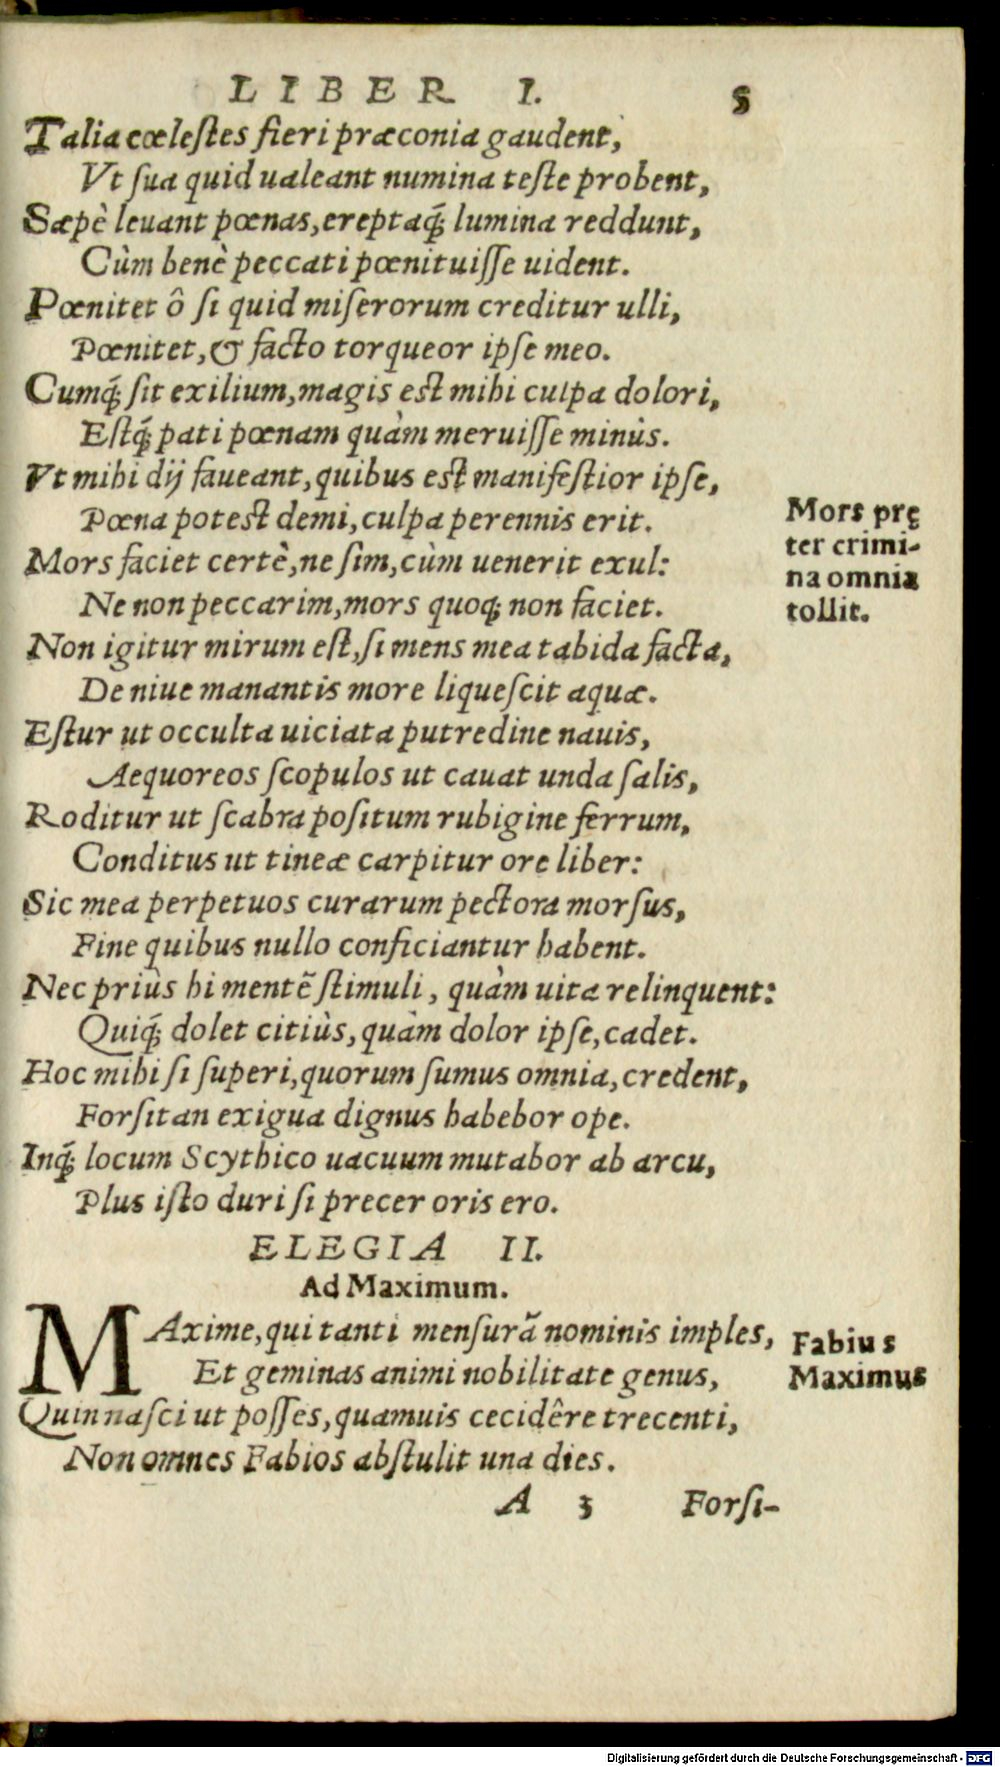 LIBER I. 5
Talia cœleſtes fieri præconia gaudent,
Vt ſua quid ualeant numina teſte probent,
Sæpè leuant pœnas, ereptaq́; lumina reddunt,
Cùm benè peccati pœnituiſſe uident.
Pœnitet ô ſi quid miſerorum creditur ulli,
Pœnitet, & facto torqueor ipſe meo.
Cumq́; ſit exilium, magis eſt mihi culpa dolori,
Eſtq́; pati pœnam quàm meruiſſe minùs.
Vt mihi dij faueant, quibus eſt manifeſtior ipſe,
Pœna poteſt demi, culpa perennis erit.
Mors faciet certè, ne ſim, cùm uenerit exul:
Ne non peccarim, mors quoq; non faciet.
Mors prę
ter crimi-
na omnia
tollit.
Non igitur mirum eſt, ſi mens mea tabida facta,
De niue manantis more liqueſcit aquæ.
Eſtur ut occulta uiciata putredine nauis,
Aequoreos ſcopulos ut cauat unda ſalis,
Roditur ut ſcabra poſitum rubigine ferrum,
Conditus ut tineæ carpitur ore liber:
Sic mea perpetuos curarum pectora morſus,
Fine quibus nullo conficiantur habent.
Nec priùs hi mentẽ ſtimuli, quàm uita relinquent:
Quiq́; dolet citiùs, quàm dolor ipſe, cadet.
Hoc mihi ſi ſuperi, quorum ſumus omnia, credent,
Forſitan exigua dignus habebor ope.
Inq́; locum Scythico uacuum mutabor ab arcu,
Plus iſto duri ſi precer oris ero.
ELEGIA II.
Ad Maximum.
MAxime, qui tanti menſurã nominis imples,
Et geminas animi nobilitate genus,
Fabius
Maximus
Quin naſci ut poſſes, quamuis cecidêre trecenti,
Non omnes Fabios abſtulit una dies.
A 3 Forſi-
Digitalisierung gefördert durch die Deutsche Forschungsgemeinschaft - DFG